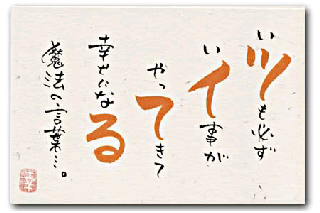 いツも必ず
いイ事が
やってきて
幸せになる
魔法の言葉…。